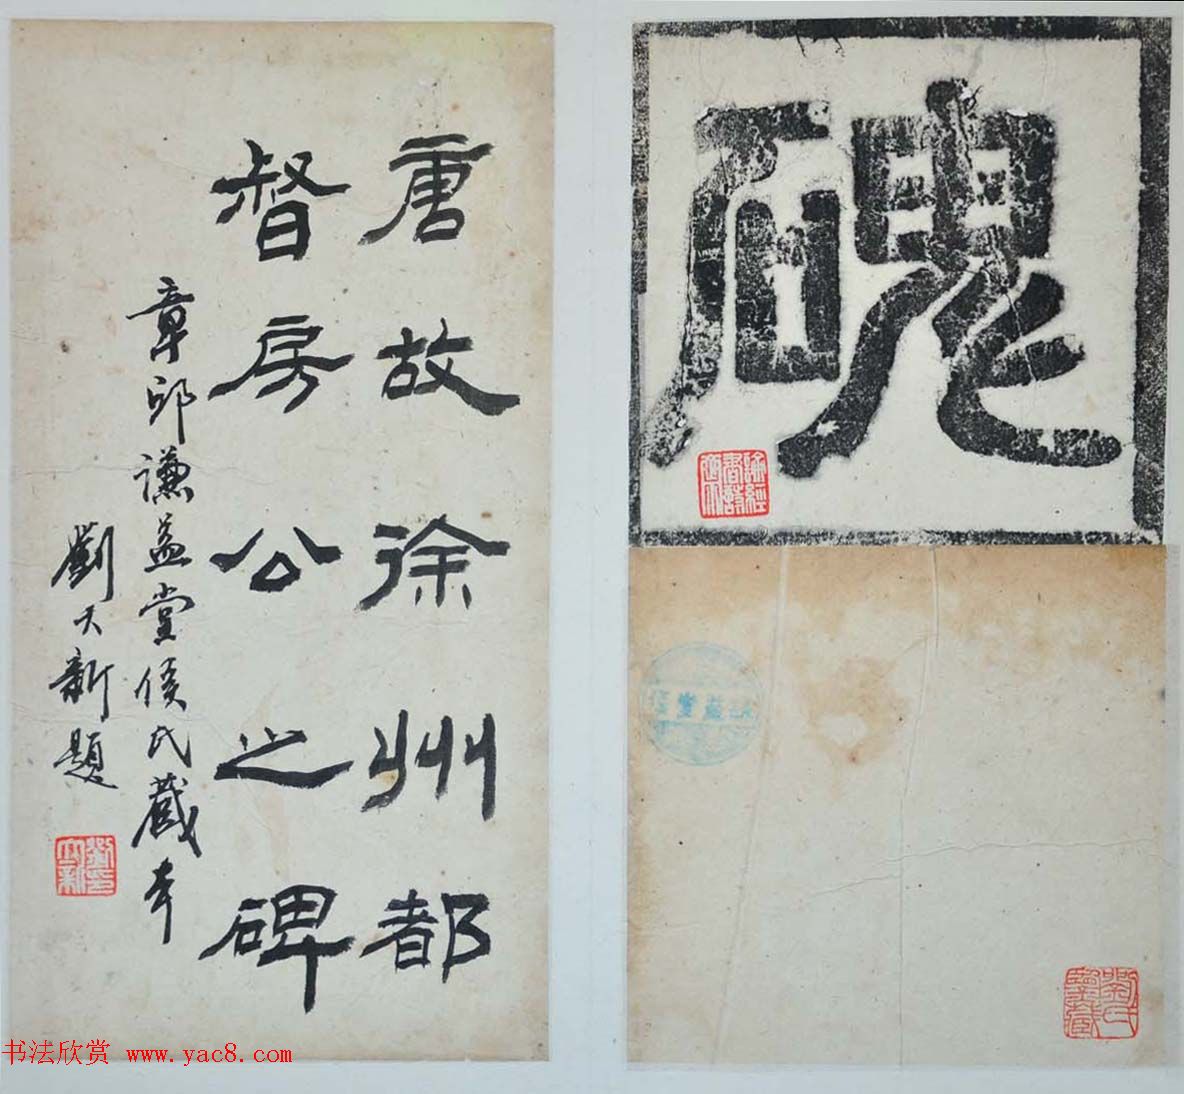 磈
唐故徐州都
督房公之碑
章邱謙益堂侯氏藏本
劉天新題
书法欣赏 www.yac8.com